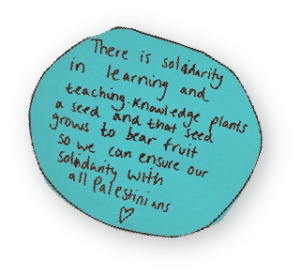 There is solidarity
in learning and
teaching. Knowledge plants
a seed and that seed
grows to bear fruit
so we can ensure our
solidarity with
all Palestinians
♡